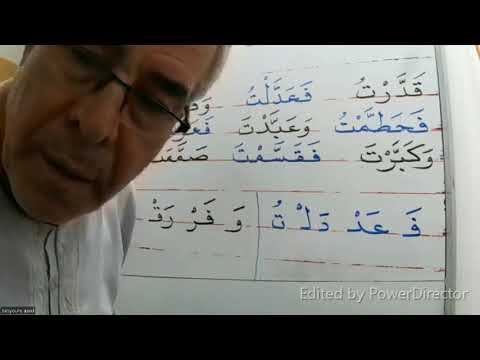 قَدَّرْتُ فَعَدَّلْتُ
فَحَطَّمْتُ وَعَبَّدْتَ
وَكَبَّرْتَ فَقَسَّمْتَ
فَ عَدْ دَلْ تُ وَ فَرْ رَقْ
Edited by PowerDirector